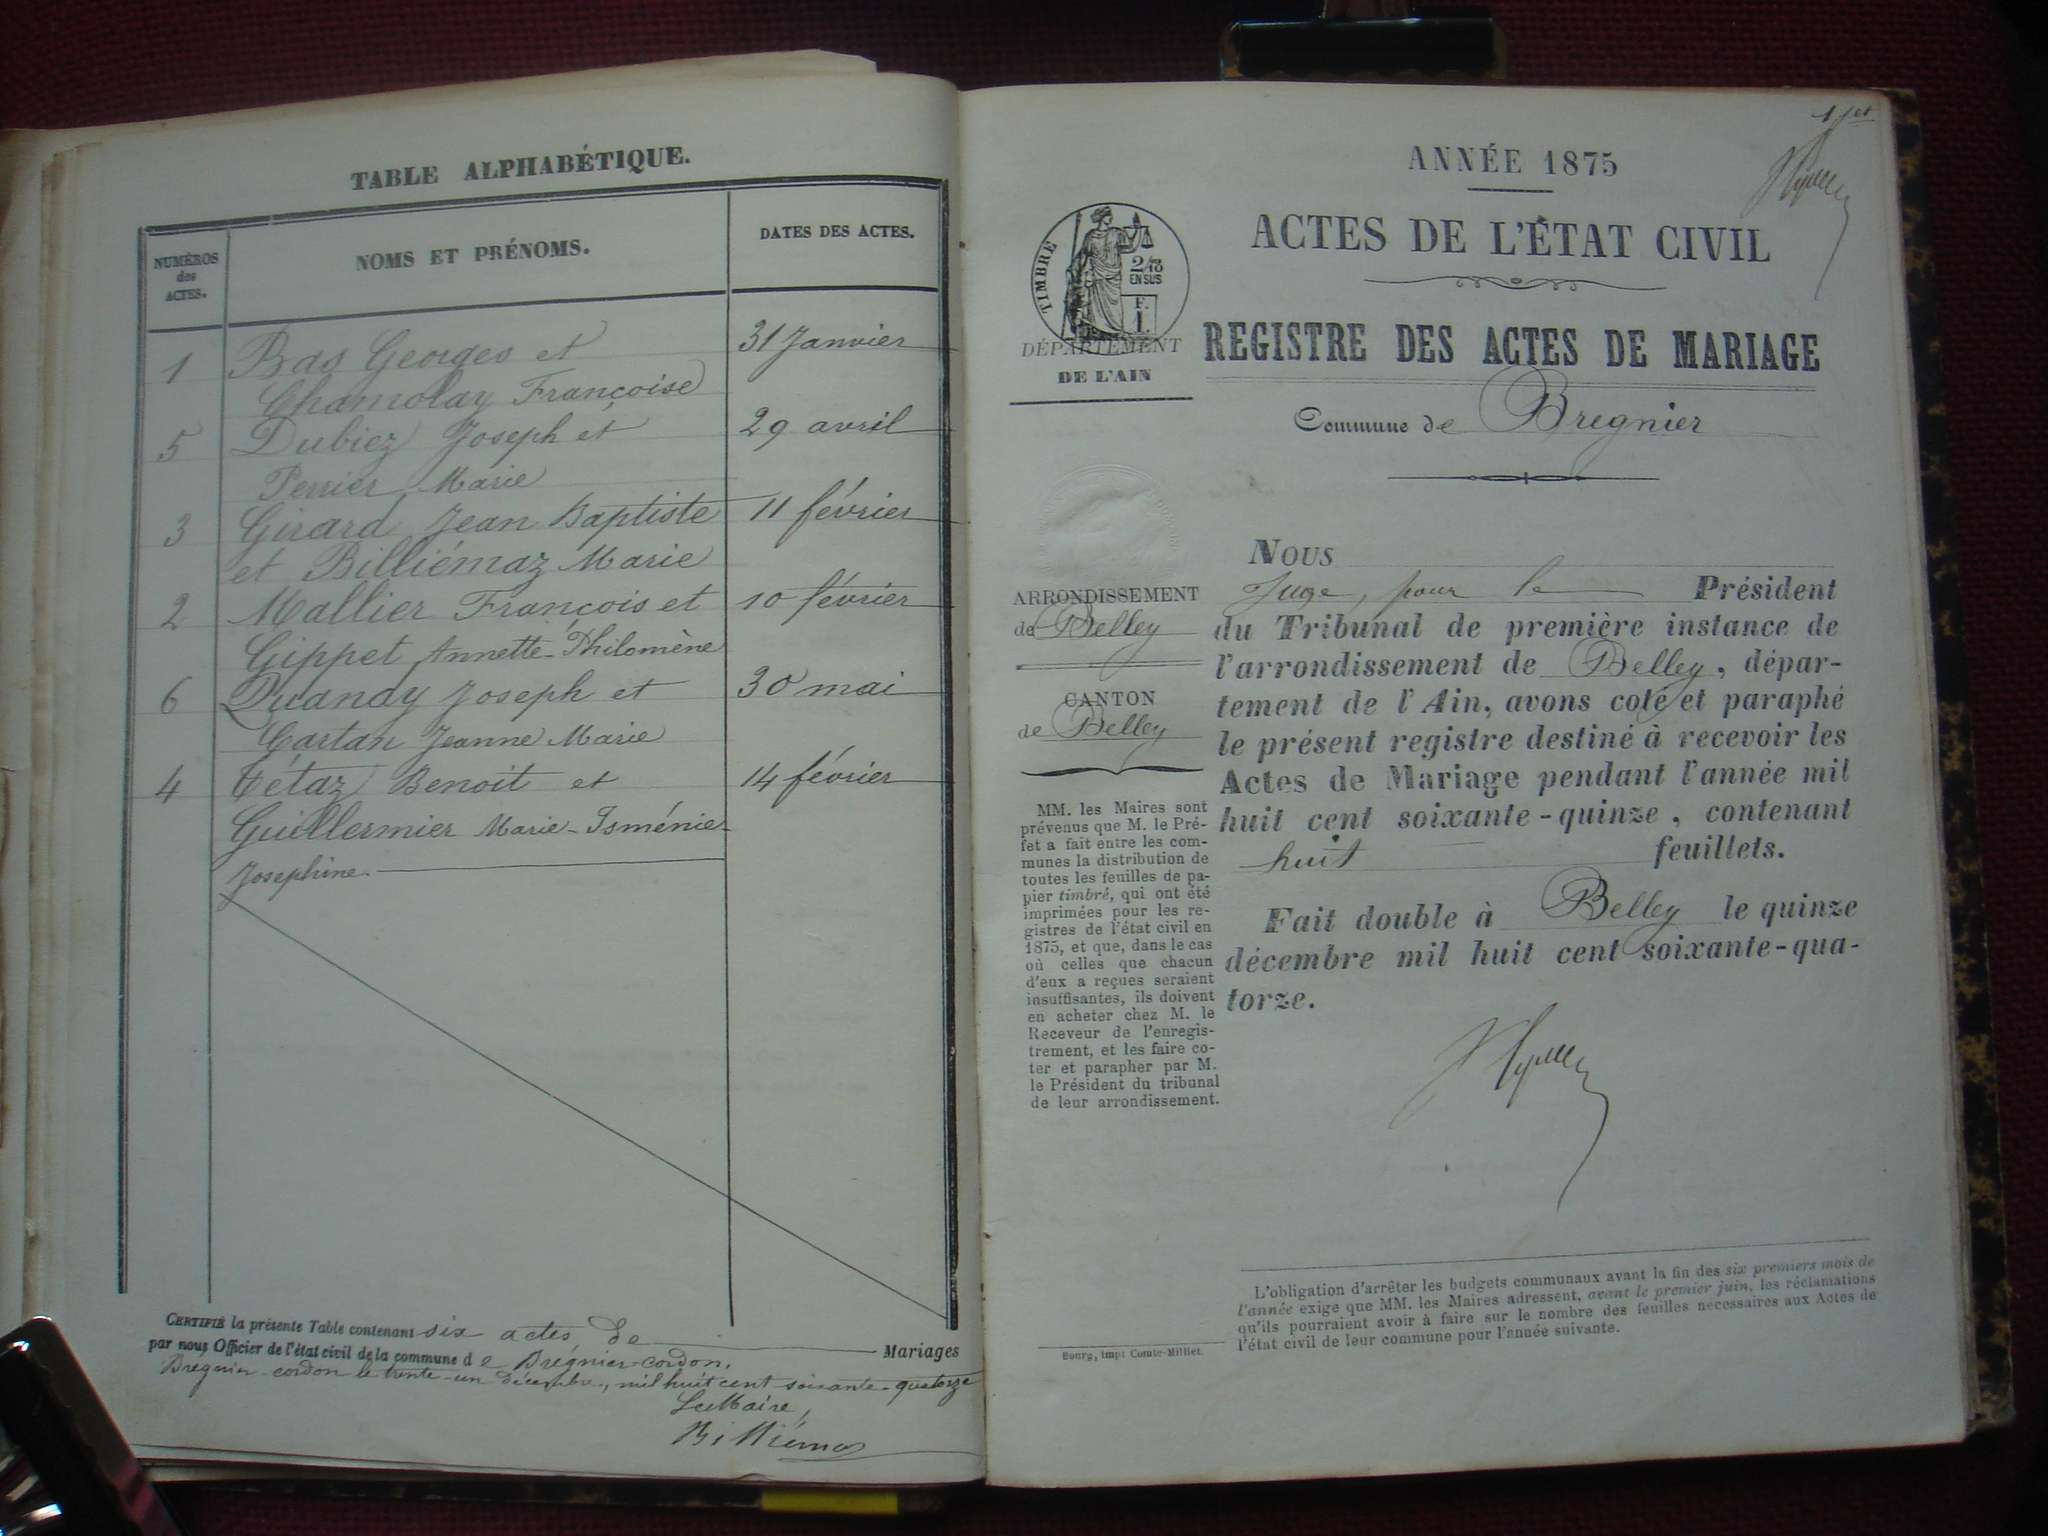 TABLE ALPHABÉTIQUE.
NUMÉROS
des
ACTES.
NOMS ET PRÉNOMS.
DATES DES ACTES.
1 Bas Georges et 31 Janvier
Chamolay Françoise
5 Dubiez Joseph et 29 avril
Perrier Marie
3 Girard Jean Baptiste 11 février
et Billiémaz Marie
2 Mallier François et 10 février
Gippet Annette-Philomène
6 Quanay Joseph et 30 mai
Cartan Jeanne Marie
4 Tétaz Benoit et 14 février
Guillermier Marie-Isménie-
Josephine.
CERTIFIÉ la présente Table contenant six actes de Mariages
par nous Officier de l'état civil de la commune de Brégnier-cordon.
Bregnier-cordon le trente-un décembre, mil huit cent soixante-quatorze
Le Maire,
Billiémaz
1er
ANNÉE 1875
ACTES DE L'ÉTAT CIVIL
REGISTRE DES ACTES DE MARIAGE
Commune de Bregnier
TIMBRE
2/10
EN SUS
F.
1.
DÉPARTEMENT
DE L'AIN
ARRONDISSEMENT
de Belley
CANTON
de Belley
MM. les Maires sont
prévenus que M. le Pré-
fet a fait entre les com-
munes la distribution de
toutes les feuilles de pa-
pier timbré, qui ont été
imprimées pour les re-
gistres de l'état civil en
1875, et que, dans le cas
où celles que chacun
d'eux a reçues seraient
insuffisantes, ils doivent
en acheter chez M. le
Receveur de l'enregis-
trement, et les faire co-
ter et parapher par M.
le Président du tribunal
de leur arrondissement.
NOUS
Juge, pour le Président
du Tribunal de première instance de
l'arrondissement de Belley, dépar-
tement de l'Ain, avons coté et paraphé
le présent registre destiné à recevoir les
Actes de Mariage pendant l'année mil
huit cent soixante-quinze, contenant
huit feuillets.
Fait double à Belley le quinze
décembre mil huit cent soixante-qua-
torze.
L'obligation d'arrêter les budgets communaux avant la fin des six premiers mois de
l'année exige que MM. les Maires adressent, avant le premier juin, les réclamations
qu'ils pourraient avoir à faire sur le nombre des feuilles nécessaires aux Actes de
l'état civil de leur commune pour l'année suivante.
Bourg, imp. Comte-Milliet.